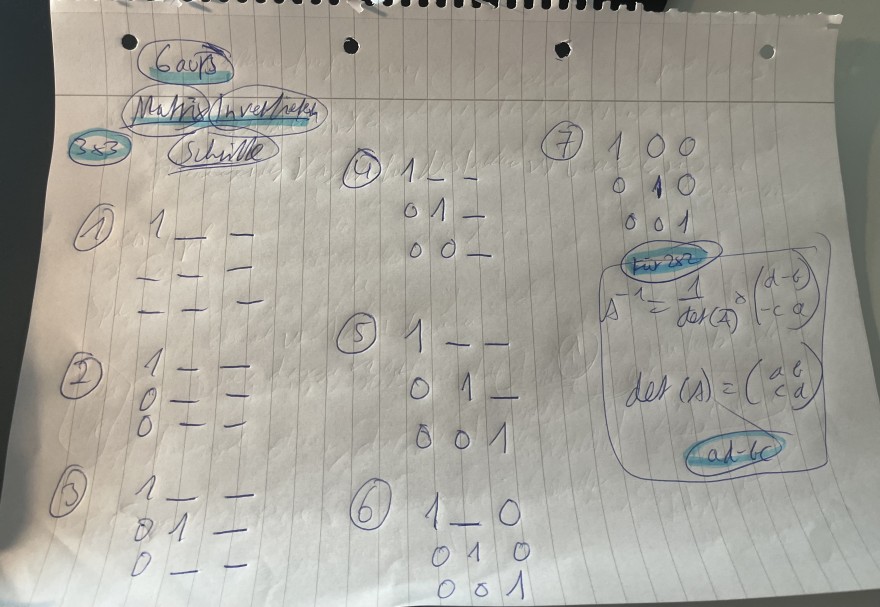 Gauß
Matrix Invertieren
3x3 Schritte
① 1 _ _
_ _ _
_ _ _
② 1 _ _
0 _ _
0 _ _
③ 1 _ _
0 1 _
0 _ _
④ 1 _ _
0 1 _
0 0 _
⑤ 1 _ _
0 1 _
0 0 1
⑥ 1 _ 0
0 1 0
0 0 1
⑦ 1 0 0
0 1 0
0 0 1
Für 2x2
A⁻¹ = 1/det(A) · (d -b
-c a)
det(A) = (a b
c d)
ad-bc